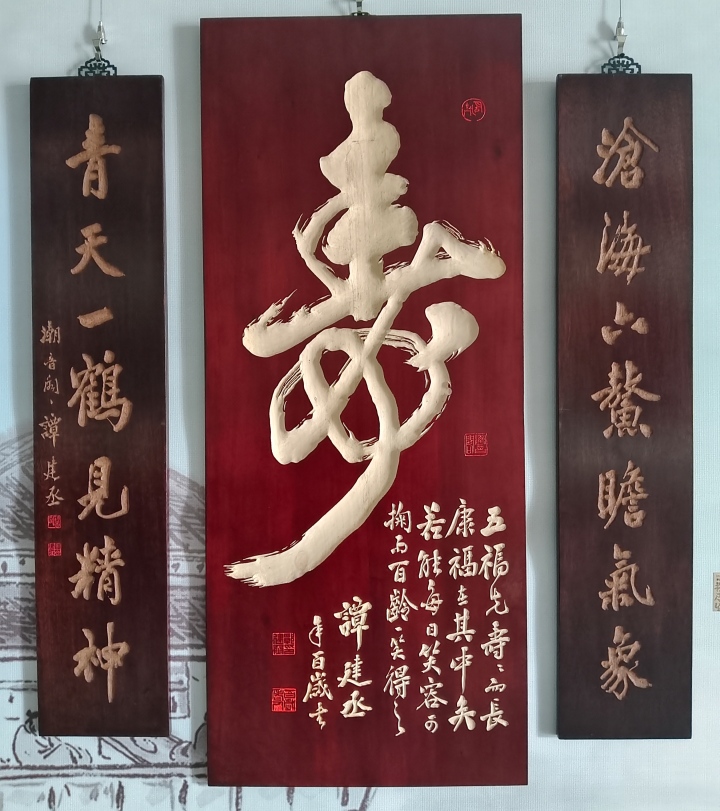 滄海六鰲瞻氣象
壽
五福先壽壽而長
康福在其中矣
若能每日笑容可
掬而百齡笑得之
譚建丞
年百歲書
青天一鶴見精神
潮音閣譚建丞